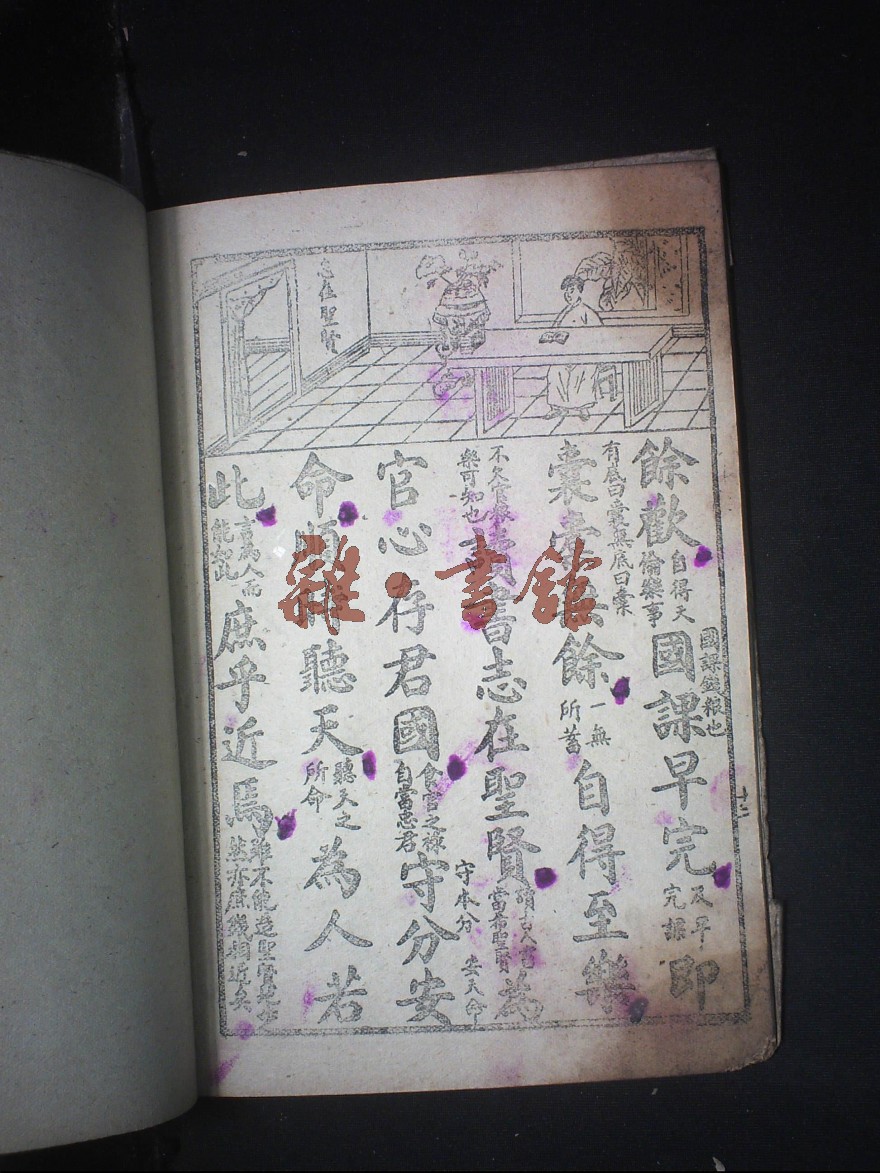 志在聖賢
餘歡自得天倫樂事國課錢粮也國課早完及早完課即
有底曰囊無底曰橐囊橐無餘一無所蓄自得至樂
不欠官粮樂可知也讀書志在聖賢謂古人書當希聖賢為
官心存君國食官之祿自當忠君守分安守本分安天命
命順時聽天聽天之所命為人若
此言為人而能如此庶乎近焉雖不能造聖賢地步然亦庶幾相近矣
十二
雜·書館